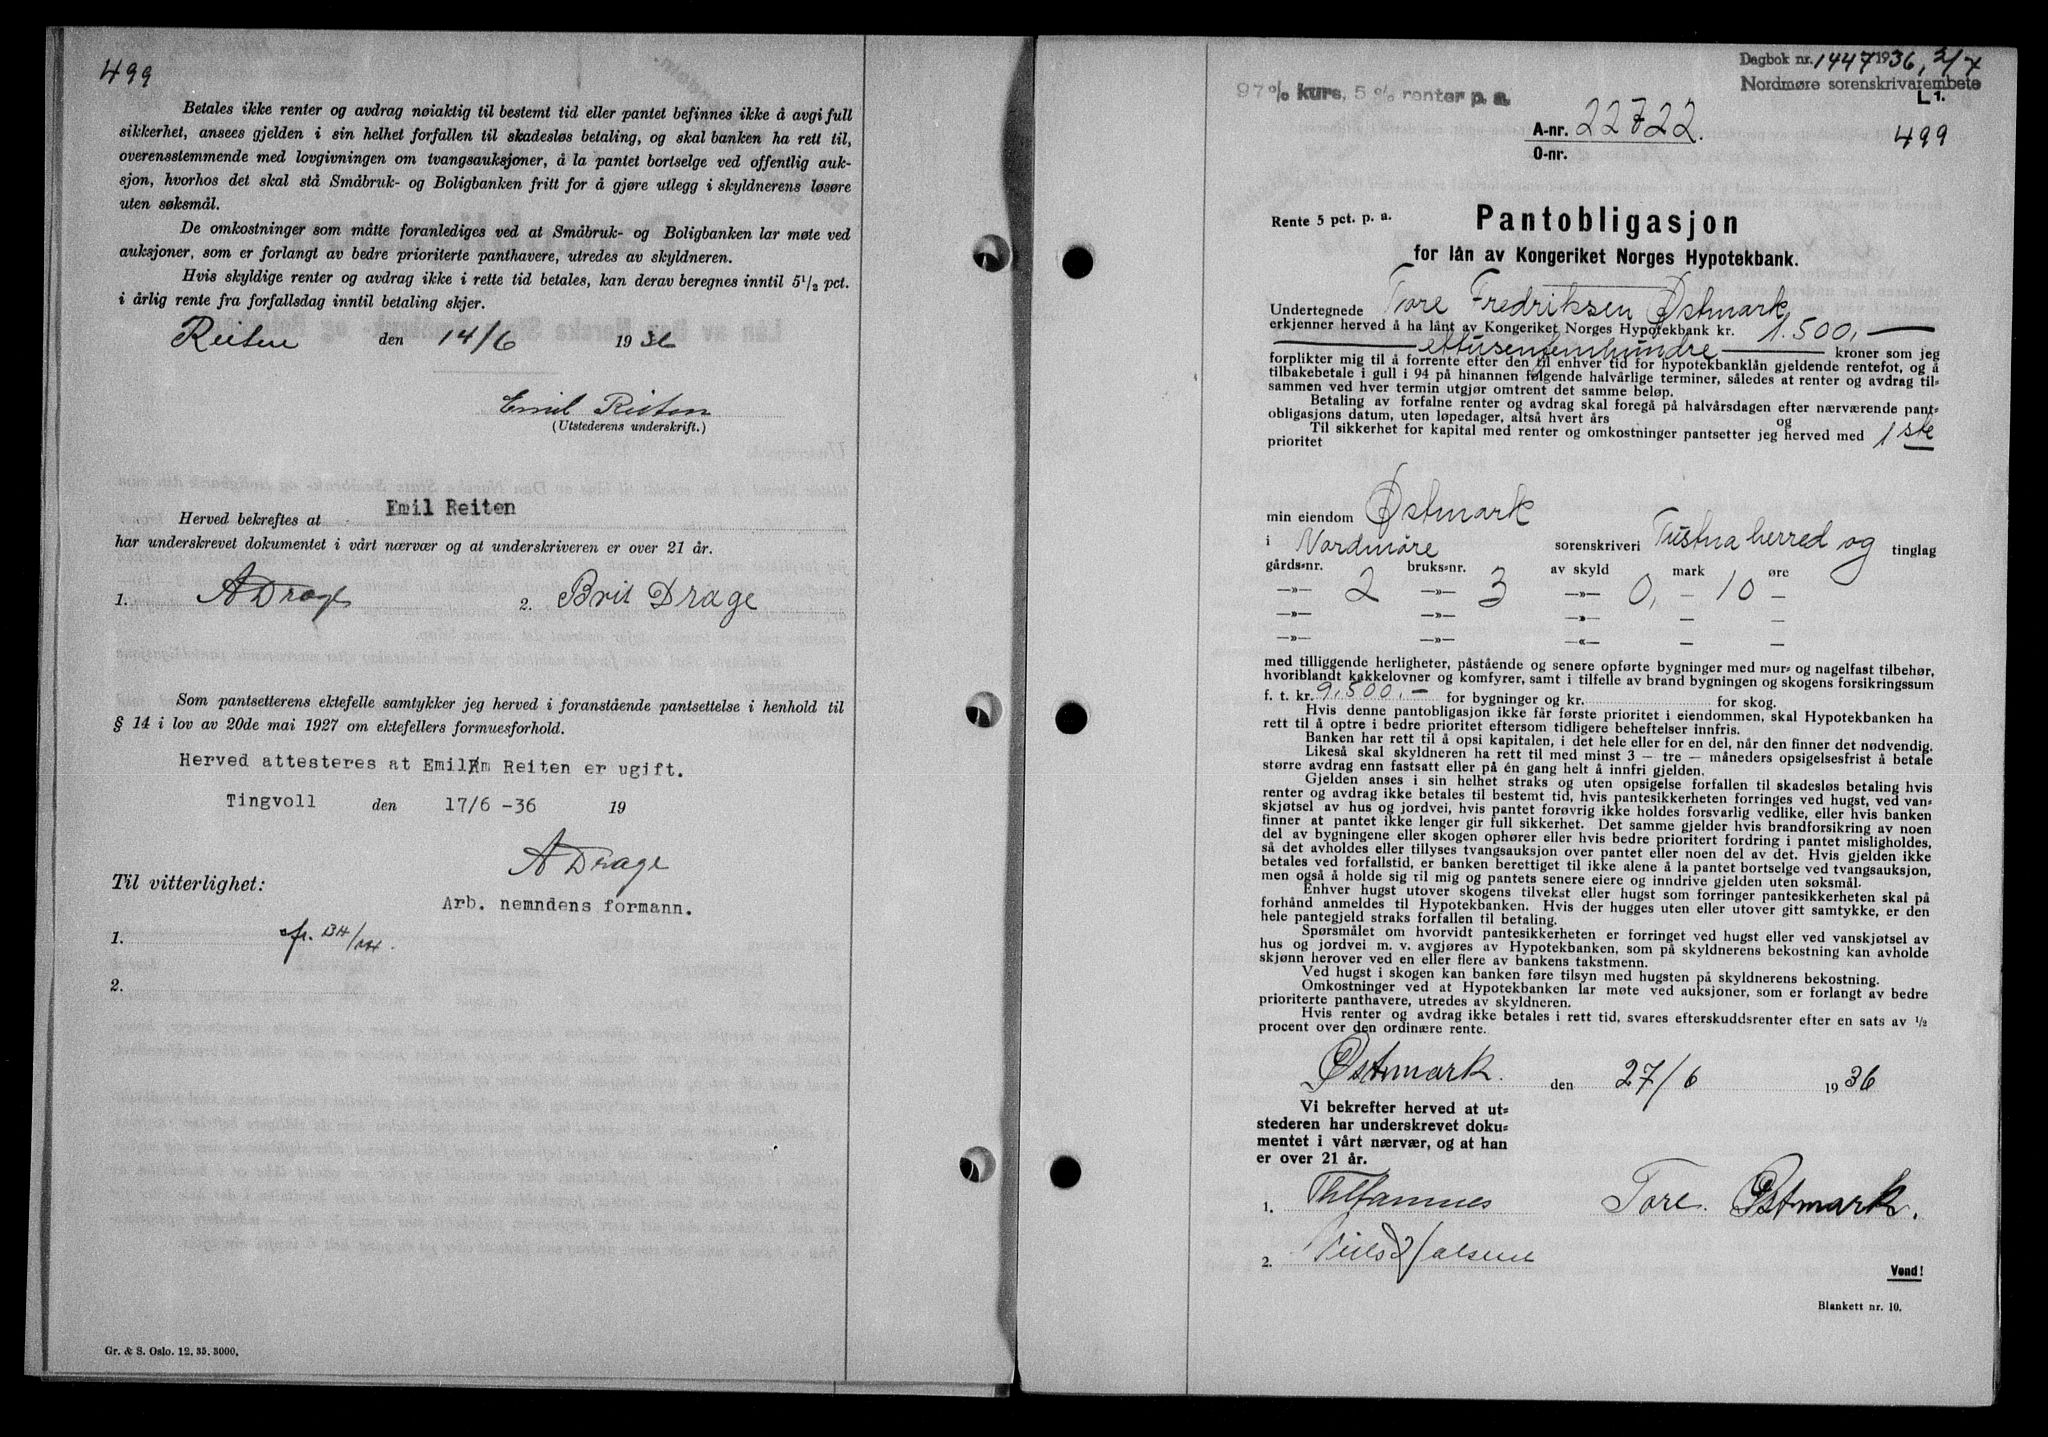 499
Betales ikke renter og avdrag nøiaktig til bestemt tid eller pantet befinnes ikke å avgi full
sikkerhet, ansees gjelden i sin helhet forfallen til skadesløs betaling, og skal banken ha rett til,
overensstemmende med lovgivningen om tvangsauksjoner, å la pantet bortselge ved offentlig auk-
sjon, hvorhos det skal stå Småbruk- og Boligbanken fritt for å gjøre utlegg i skyldnerens løsøre
uten søksmål.
De omkostninger som måtte foranlediges ved at Småbruk- og Boligbanken lar møte ved
auksjoner, som er forlangt av bedre prioriterte panthavere, utredes av skyldneren.
Hvis skyldige renter og avdrag ikke i rette tid betales, kan derav beregnes inntil 5 1/2 pct.
i årlig rente fra forfallsdag inntil betaling skjer.
Reiten den 14/6 1936
Emil Reiten
(Utstederens underskrift.)
Herved bekreftes at Emil Reiten
har underskrevet dokumentet i vårt nærvær og at underskriveren er over 21 år.
1. A Drage 2. Brit Drage
Som pantsetterens ektefelle samtykker jeg herved i foranstående pantsettelse i henhold til
§ 14 i lov av 20de mai 1927 om ektefellers formuesforhold.
Herved attesteres at Emil Reiten er ugift.
Tingvoll den 17/6 -36 19
A Drage
Til vitterlighet:
Arb. nemndens formann.
1.
2.
Gr. & S. Oslo. 12. 35. 3000.
Dagbok nr. 1447 1936, 2/7
Nordmøre sorenskrivarembete
L 1.
97 % kurs, 5 % renter p. a.
A-nr. 22722.
O-nr.
499
Rente 5 pct. p. a.
Pantobligasjon
for lån av Kongeriket Norges Hypotekbank.
Undertegnede Tore Fredriksen Østmark
erkjenner herved å ha lånt av Kongeriket Norges Hypotekbank kr. 1.500,-
ettusenfemhundre kroner som jeg
forplikter mig til å forrente efter den til enhver tid for hypotekbanklån gjeldende rentefot, og å
tilbakebetale i gull i 94 på hinannen følgende halvårlige terminer, således at renter og avdrag til-
sammen ved hver termin utgjør omtrent det samme beløp.
Betaling av forfalne renter og avdrag skal foregå på halvårsdagen efter nærværende pant-
obligasjons datum, uten løpedager, altså hvert års og
Til sikkerhet for kapital med renter og omkostninger pantsetter jeg herved med 1ste
prioritet
min eiendom Østmark
i Nordmøre sorenskriveri Tustna herred og tinglag
gårds-nr. bruks-nr. av skyld mark øre
—»— 2 —»— 3 —»— 0, — 10 —
—»— —»— —»— — —
—»— —»— —«— — —
med tilliggende herligheter, påstående og senere opførte bygninger med mur- og nagelfast tilbehør,
hvoriblandt kakkelovner og komfyrer, samt i tilfelle av brand bygningen og skogens forsikringssum
f. t. kr. 9.500.- for bygninger og kr. for skog.
Hvis denne pantobligasjon ikke får første prioritet i eiendommen, skal Hypotekbanken ha
rett til å optre i bedre prioritet eftersom tidligere beheftelser innfris.
Banken har rett til å opsi kapitalen, i det hele eller for en del, når den finner det nødvendig.
Likeså skal skyldneren ha rett til med minst 3 — tre — måneders opsigelsesfrist å betale
større avdrag enn fastsatt eller på én gang helt å innfri gjelden.
Gjelden anses i sin helhet straks og uten opsigelse forfallen til skadesløs betaling hvis
renter og avdrag ikke betales til bestemt tid, hvis pantesikkerheten forringes ved hugst, ved van-
skjøtsel av hus og jordvei, hvis pantet forøvrig ikke holdes forsvarlig vedlike, eller hvis banken
finner at pantet ikke lenger gir full sikkerhet. Det samme gjelder hvis brandforsikring av noen
del av bygningene eller skogen ophører eller hvis bedre prioritert fordring i pantet misligholdes,
så det avholdes eller tillyses tvangsauksjon over pantet eller noen del av det. Hvis gjelden ikke
betales ved forfallstid, er banken berettiget til ikke alene å la pantet bortselge ved tvangsauksjon,
men også å holde sig til mig og pantets senere eiere og inndrive gjelden uten søksmål.
Enhver hugst utover skogens tilvekst eller hugst som forringer pantesikkerheten skal på
forhånd anmeldes til Hypotekbanken. Hvis der hugges uten eller utover gitt samtykke, er den
hele pantegjeld straks forfallen til betaling.
Spørsmålet om hvorvidt pantesikkerheten er forringet ved hugst eller ved vanskjøtsel av
hus og jordvei m. v. avgjøres av Hypotekbanken, som på skyldnerens bekostning kan avholde
skjønn herover ved en eller flere av bankens takstmenn.
Ved hugst i skogen kan banken føre tilsyn med hugsten på skyldnerens bekostning.
Omkostninger ved at Hypotekbanken lar møte ved auksjoner, som er forlangt av bedre
prioriterte panthavere, utredes av skyldneren.
Hvis renter og avdrag ikke betales i rett tid, svares efterskuddsrenter efter en sats av 1/2
procent over den ordinære rente.
Østmark. den 27/6 1936
Vi bekrefter herved at ut-
stederen har underskrevet doku-
mentet i vårt nærvær, og at han
er over 21 år.
1. Tore Østmark.
2.
Vend!
Blankett nr. 10.